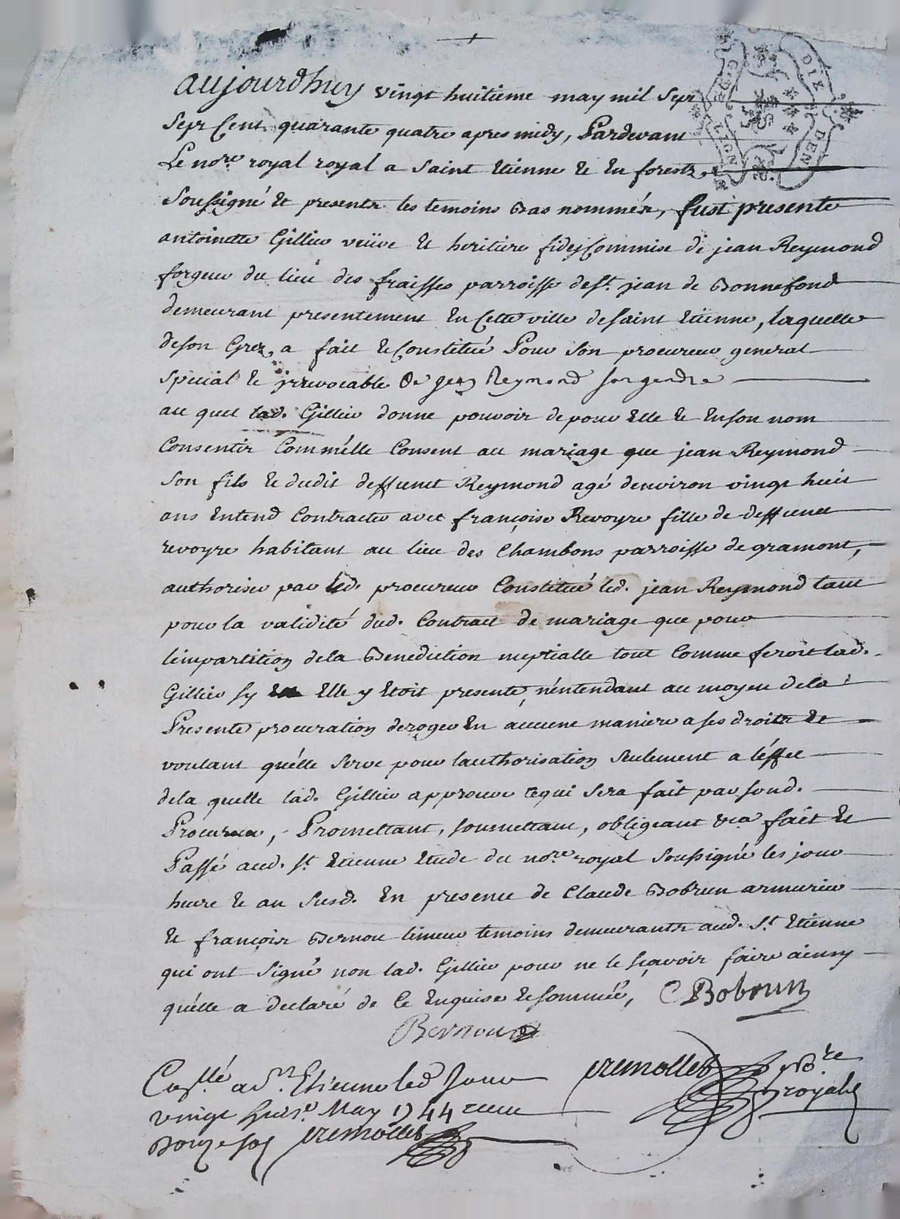 aujourdhuy vingt huitieme may mil sept
sept Cent quarante quatre apres midy, Pardevant
Le nore royal royal a Saint Etienne & En forestz,
Soussigné Et presents les temoins Bas nommés, fust presente
antoinette Gillier veüve & heritiere fideyCommise de jean Reymond
forgeur du lieu des fraisses parroisse de st. jean de Bonnefond
demeurant presentement En Cette ville de Saint Etienne, laquelle
de son Grez, a fait & Constitué Pour Son procureur general
special & irrevocable
au quel lad. Gillier donne pouvoir de pour Elle & En son nom
Consentir Comm'elle Consent au mariage que jean Reymond
Son fils & dudit deffunct Reymond agé denviron vingt huit
ans Entend Contracter avec françoise Revoyre fille de deffunct
revoyre habitant au lieu des Chambons parroisse de gramont,
authoriser par led. procureur Constitué led. jean Reymond tant
pour la validité dud. Contract de mariage que pour
l'impartition dela Benediction nuptialle tout Comme feroit lad.
Gillier sy Elle y Etoit presente, n'entendant au moyen dela
Presente procuration deroger En aucune maniere a ses droits &
voulant qu'elle serve pour lauthorisation seulement a l'effet
dela quelle lad. Gillier approuve cequi sera fait par sond.
Procureur, Promettant, soumettant, obligeant &ca fait Et
Passé aud. st. Etienne Etude du nore royal soussigné les jour
heure & an susd. En presence de Claude Bobrun armurier
& françois Bernou limeur temoins demeurants aud. St. Etienne
qui ont signé non lad. Gillier pour ne le sçavoir faire ainsy
qu'elle a declaré de Ce Enquise & sommée, C Bobrun
Bernou
Conlé a St Etienne led Jour
vingt huit May 1744 receu
Douze sols
royal